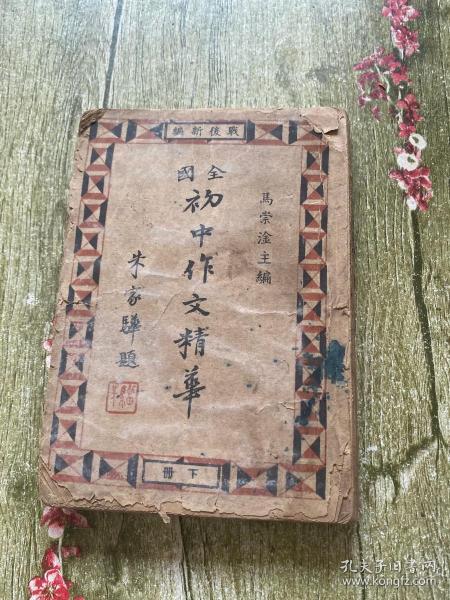 戰後新編
馬崇淦主編
全國
初中作文精華
朱家驊題
下冊
孔夫子旧书网
www.kongfz.com